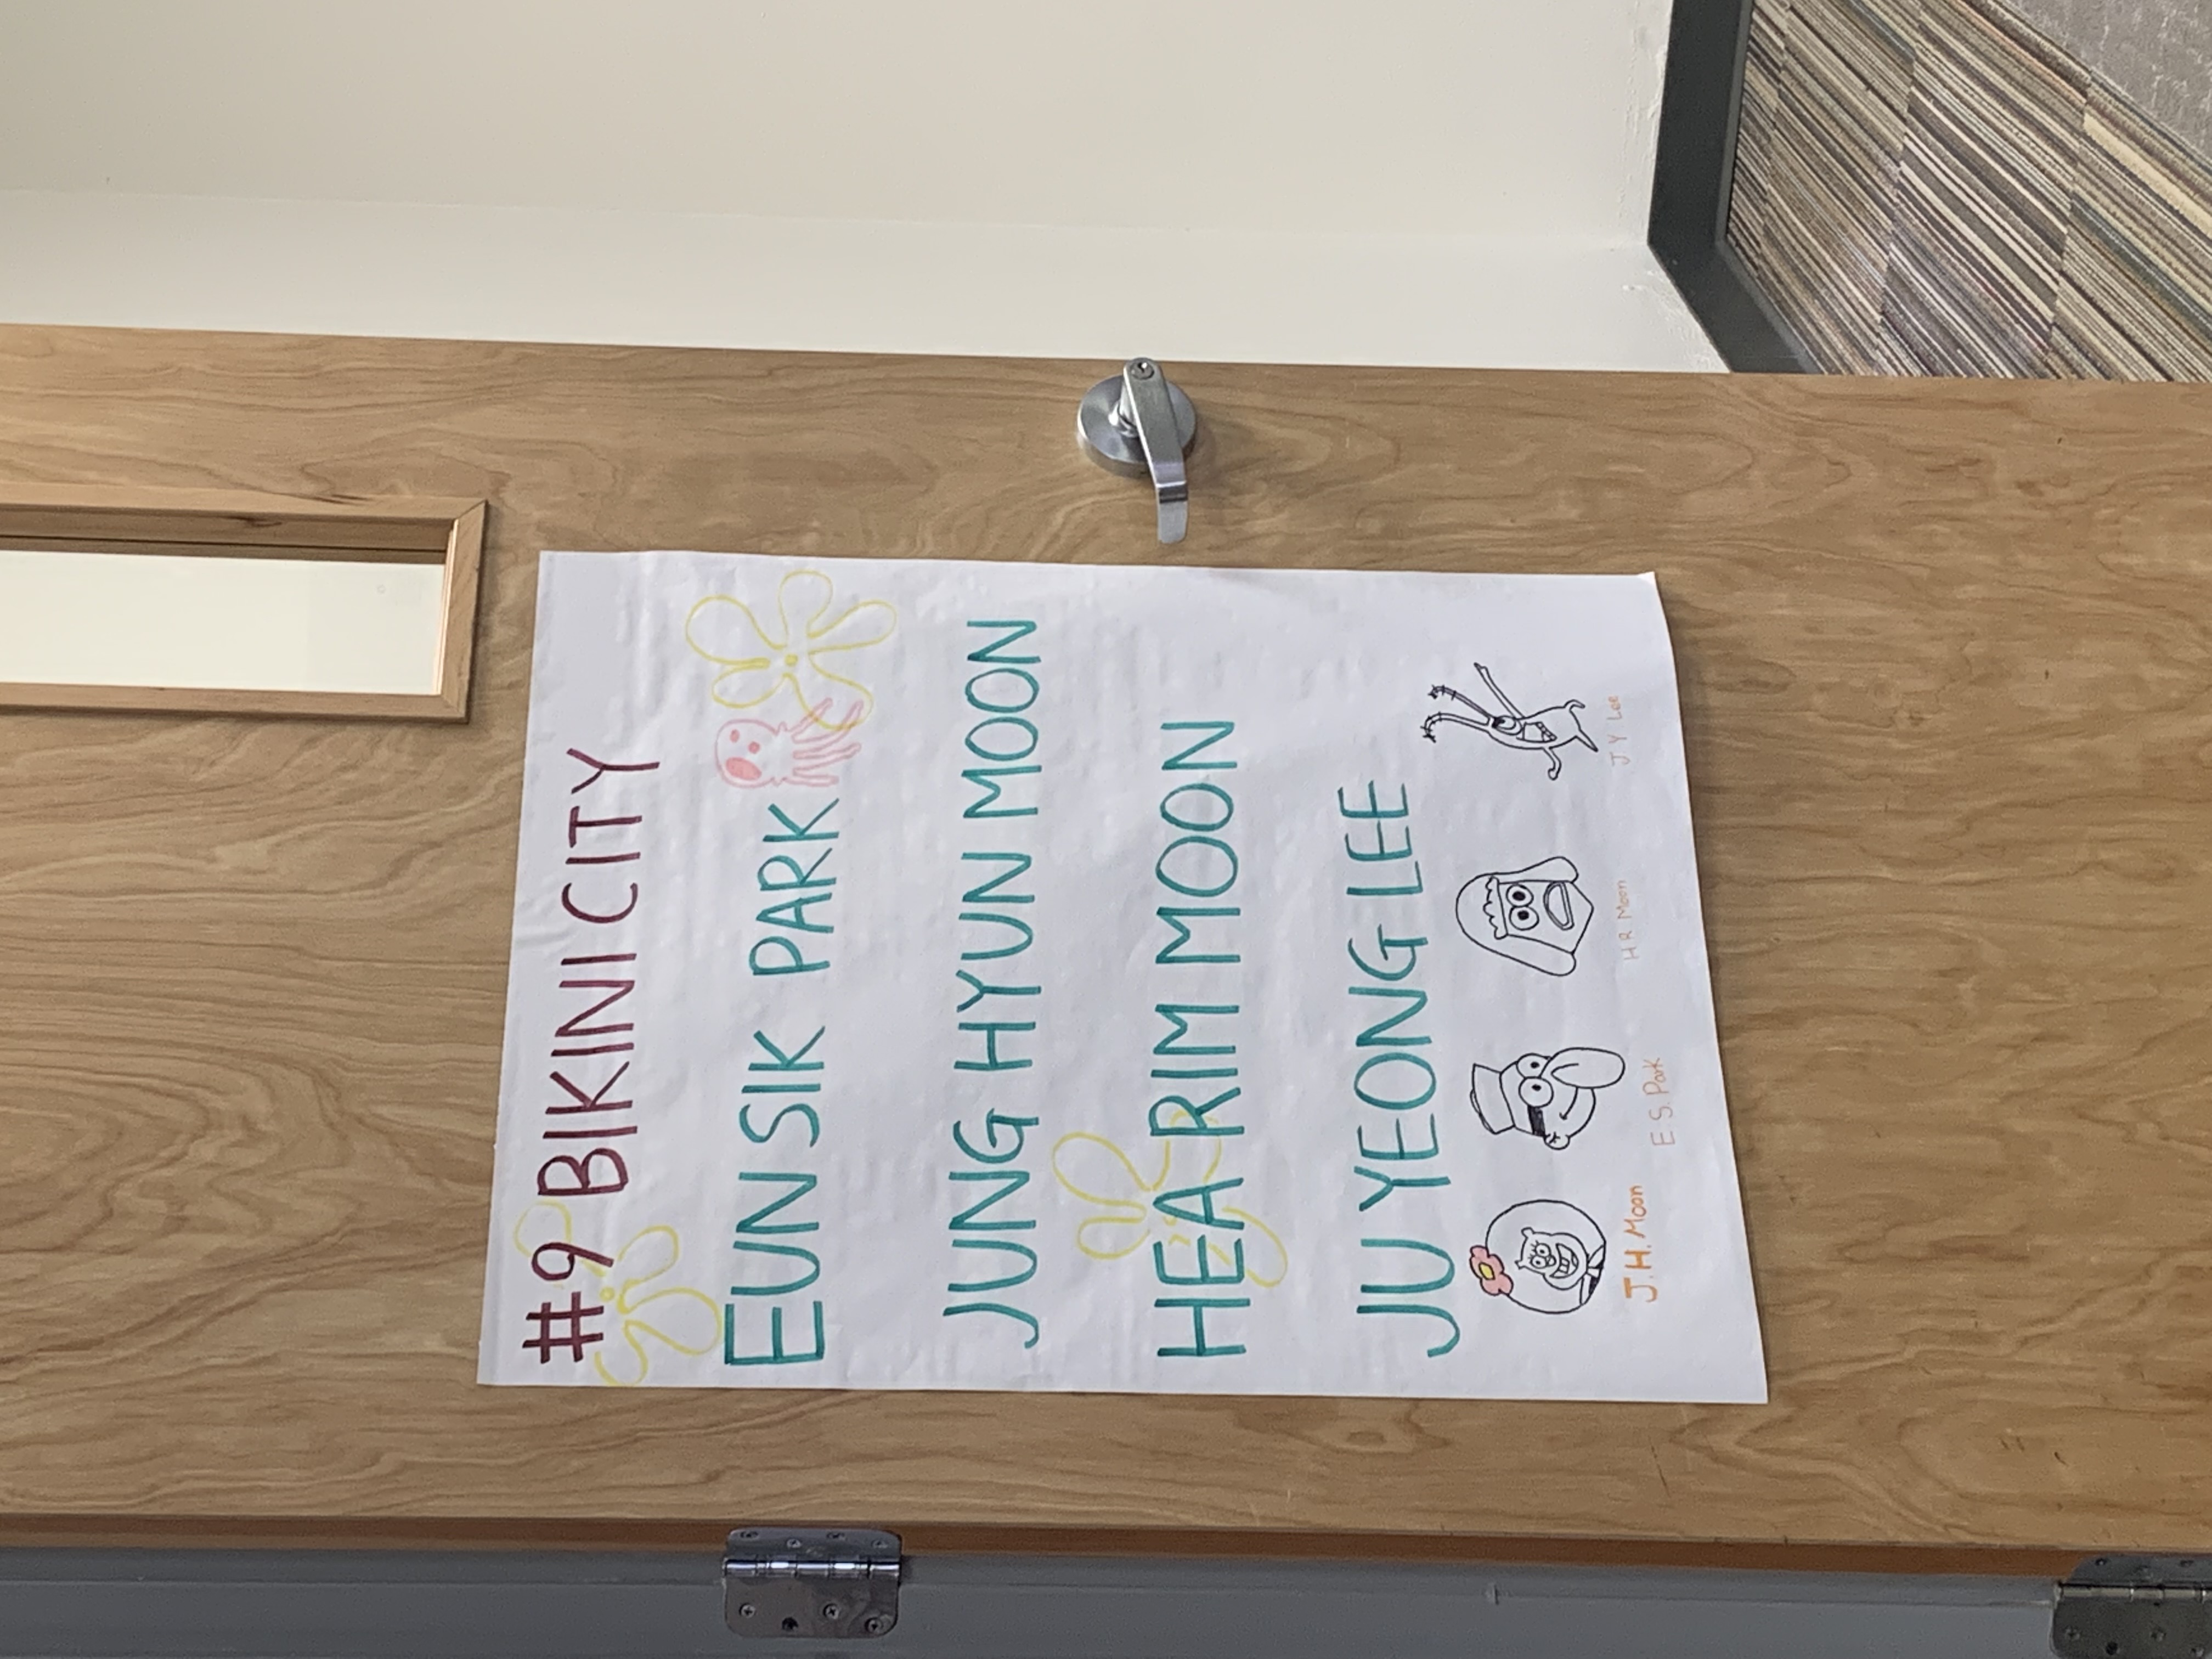 #9 BIKINI CITY
EUN SIK PARK
JUNG HYUN MOON
HEA RIM MOON
JU YEONG LEE
J.H. Moon
E.S. Park
H R Moon
J Y Lee